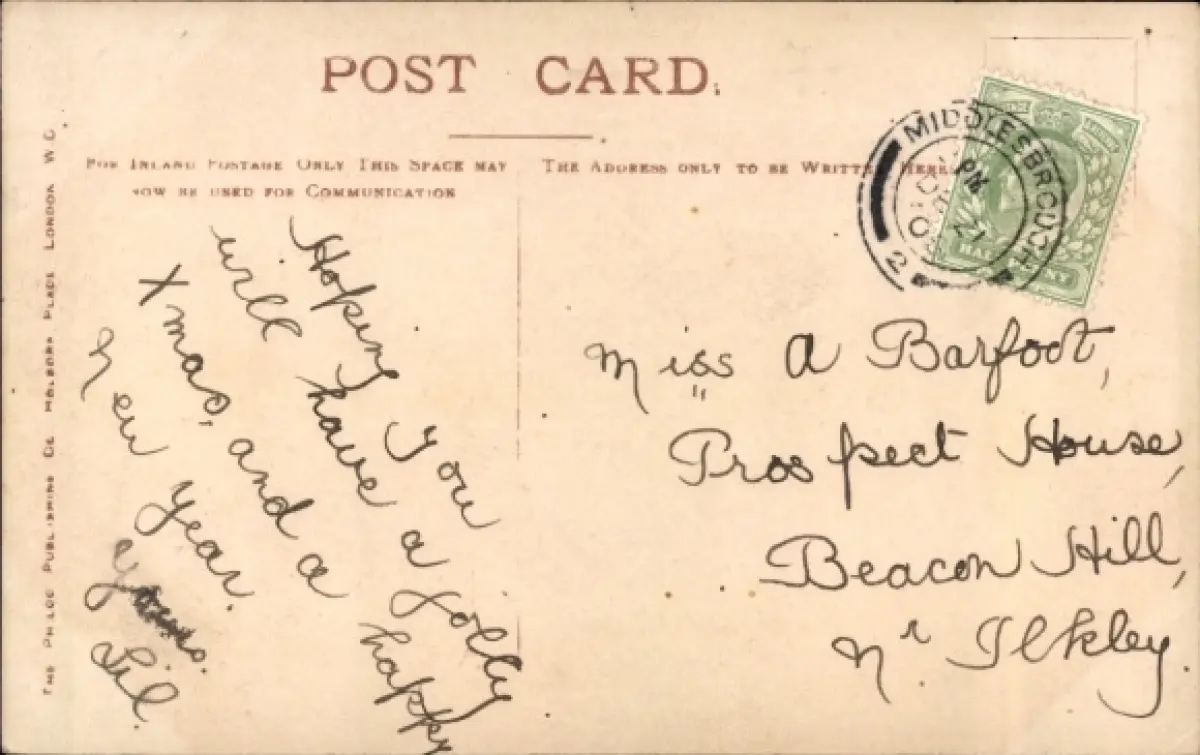 POST CARD.
FOR INLAND POSTAGE ONLY THIS SPACE MAY
NOW BE USED FOR COMMUNICATION
THE ADDRESS ONLY TO BE WRITTEN HERE
MIDDLESBROUGH
PM
2
HALFPENNY
Hoping you
will have a jolly
Xmas, and a happy
New Year.
Yours.
Lil.
Miss A Barfoot,
Prospect House,
Beacon Hill,
nr Ilkley.
PUBLISHING Co HOLBORN PLACE LONDON W.C.